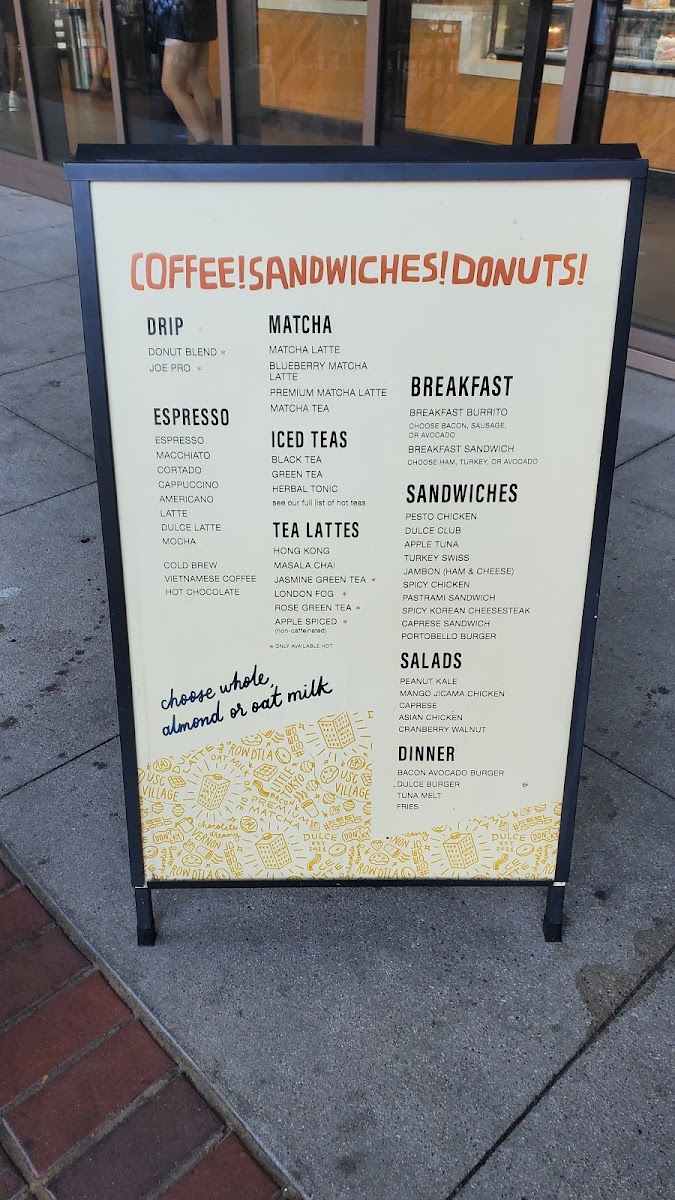 COFFEE! SANDWICHES! DONUTS!
DRIP
DONUT BLEND *
JOE PRO *
ESPRESSO
ESPRESSO
MACCHIATO
CORTADO
CAPPUCCINO
AMERICANO
LATTE
DULCE LATTE
MOCHA
COLD BREW
VIETNAMESE COFFEE
HOT CHOCOLATE
MATCHA
MATCHA LATTE
BLUEBERRY MATCHA
LATTE
PREMIUM MATCHA LATTE
MATCHA TEA
ICED TEAS
BLACK TEA
GREEN TEA
HERBAL TONIC
see our full list of hot teas
TEA LATTES
HONG KONG
MASALA CHAI
JASMINE GREEN TEA *
LONDON FOG *
ROSE GREEN TEA *
APPLE SPICED *
(non-caffeinated)
* ONLY AVAILABLE HOT
choose whole,
almond or oat milk
BREAKFAST
BREAKFAST BURRITO
CHOOSE BACON, SAUSAGE,
OR AVOCADO
BREAKFAST SANDWICH
CHOOSE HAM, TURKEY, OR AVOCADO
SANDWICHES
PESTO CHICKEN
DULCE CLUB
APPLE TUNA
TURKEY SWISS
JAMBON (HAM & CHEESE)
SPICY CHICKEN
PASTRAMI SANDWICH
SPICY KOREAN CHEESESTEAK
CAPRESE SANDWICH
PORTOBELLO BURGER
SALADS
PEANUT KALE
MANGO JICAMA CHICKEN
CAPRESE
ASIAN CHICKEN
CRANBERRY WALNUT
DINNER
BACON AVOCADO BURGER
DULCE BURGER
TUNA MELT
FRIES
LATTE
OAT MILK
ROW DTLA
USC
VILLAGE
USC
VILLAGE
BACON
PREMIUM
MATCHA
chocolate
VERNON
ROW DTLA
DULCE
EST
ROW DTLA
DULCE